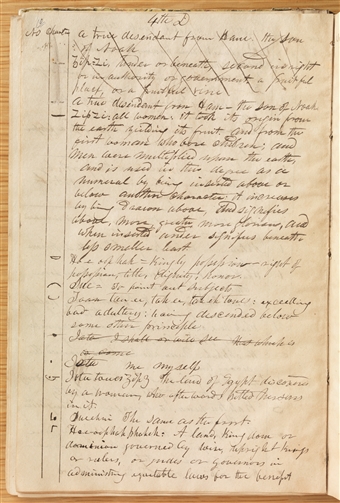 4th D
a true descendant from Ham: the son
of Noah
Zip-Zi, under or beneath, second in right
or in authority or government a fruitful
place, or a fruitful vine
a true descendant from Ham – the son of Noah
Zip zi: all women: It took its origin from
the earth yielding its fruit. and from the
first woman who bore children; and
Men were multiplied upon the earth,
and is used in this degree as a
numeral by being inserted above or
below another character; it increases
by being drawn above, and signifies
above, more, greater, more glorious, and
when inserted under signifies beneath
less smaller least
kingly power or right of
possession, title, dignity; honor
to point out subjects
exceeding
bad adultery: having descended below
some other principle
me myself
The land of Egypt discovered
by a woman, who afterwards settled her sons
in it.
The same as the first.
A land, kingdom or
dominion governed by laws, upright kings
or rulers, or judges or governors in
administering equitable laws for the benefit